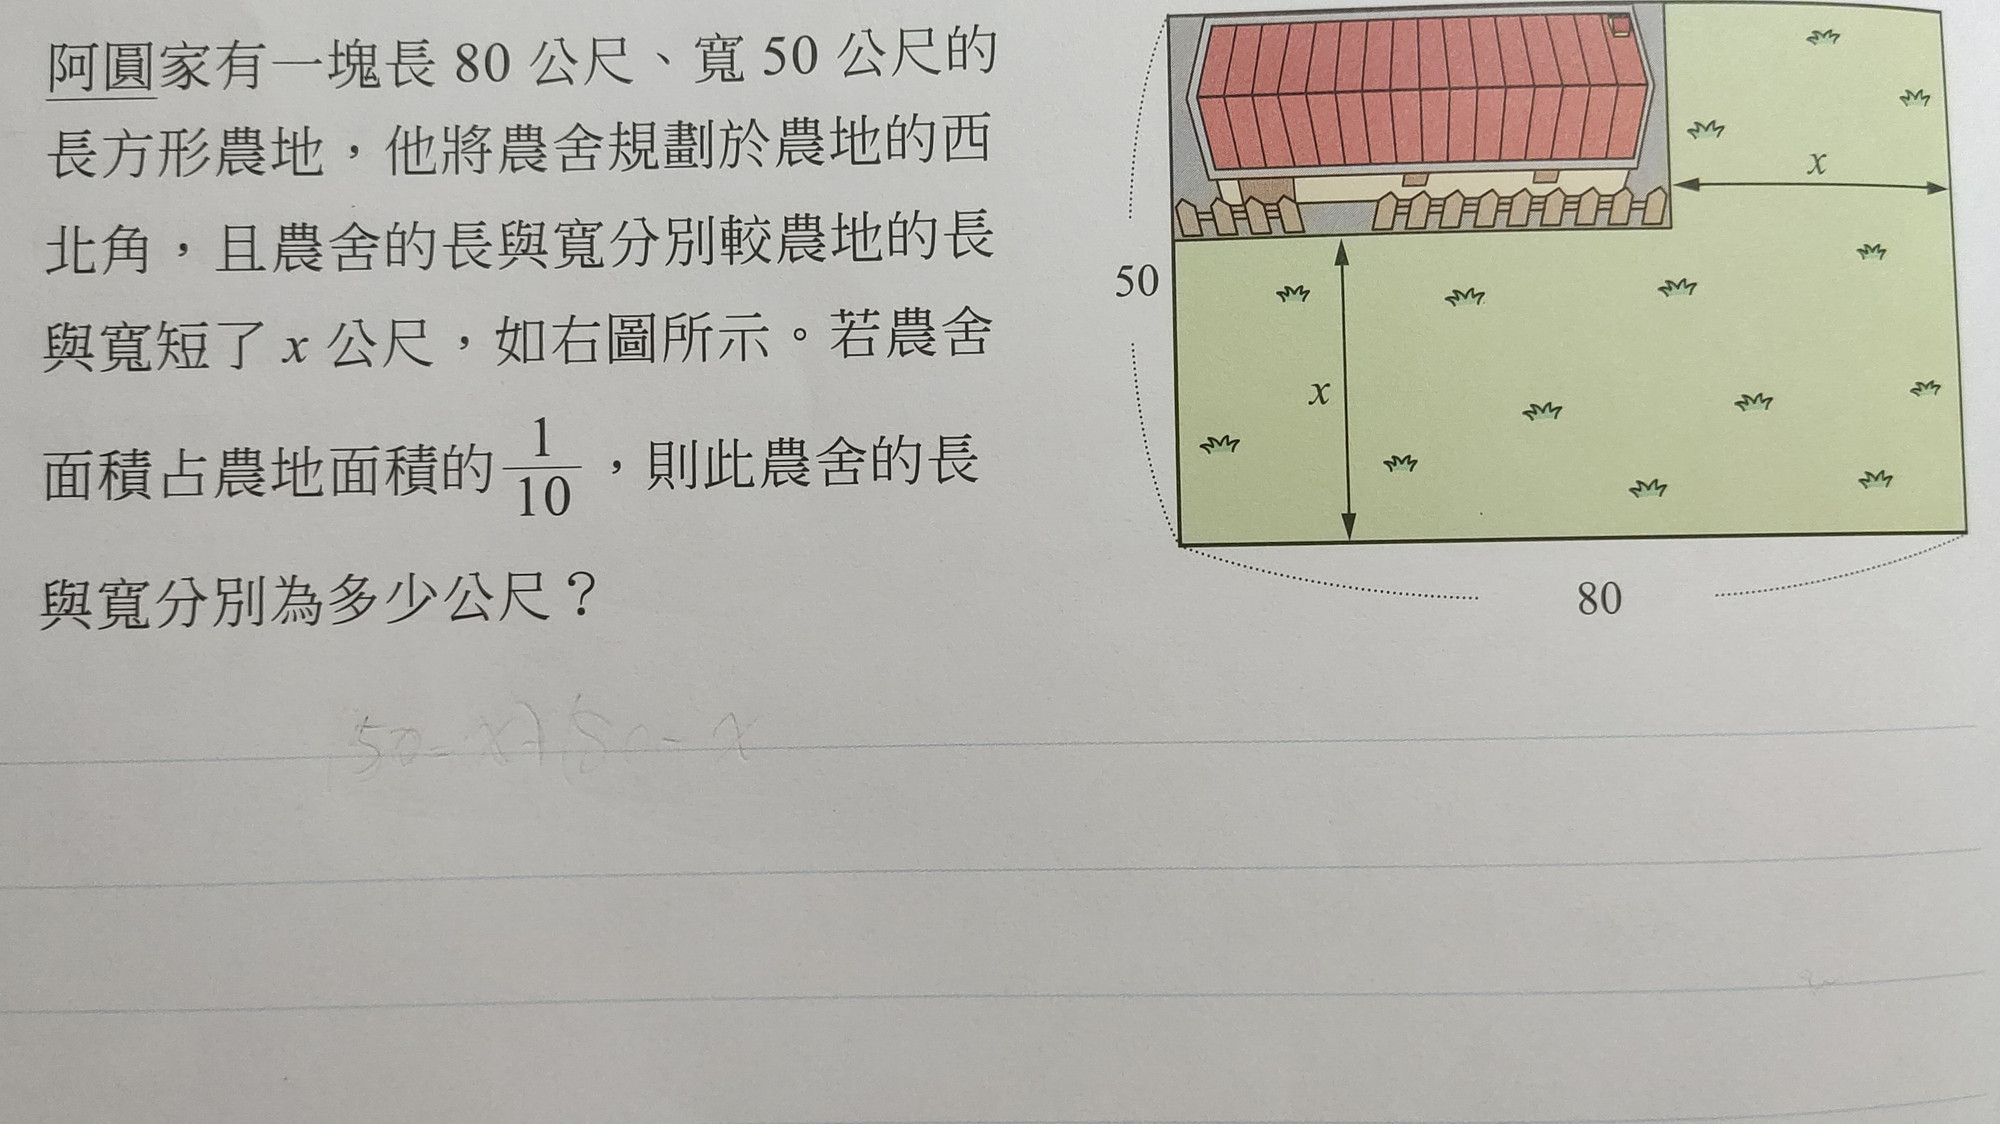 阿圓家有一塊長 80 公尺、寬 50 公尺的
長方形農地，他將農舍規劃於農地的西
北角，且農舍的長與寬分別較農地的長
與寬短了 x 公尺，如右圖所示。若農舍
面積占農地面積的 1/10，則此農舍的長
與寬分別為多少公尺？
x
50
x
80
50-x)(80-x